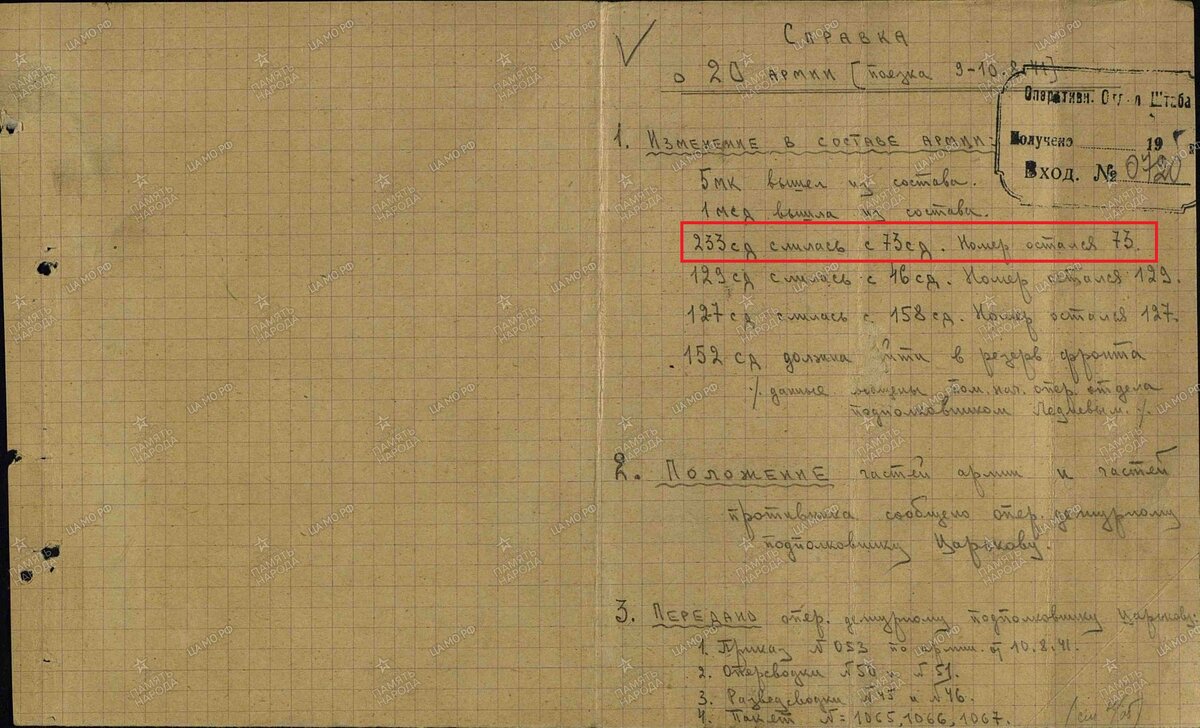 Справка
о 20 армии [поезка 9-10.8.41]
Оперативн. Отдел Штаба
Получено 19 г.
Вход. № 0720
1. Изменение в составе армии:
5 мк вышел из состава.
1 мсд вышла из состава.
233 сд слилась с 73 сд. Номер остался 73.
129 сд слилась с 46 сд. Номер остался 129.
127 сд слилась с 158 сд. Номер остался 127.
152 сд должна уйти в резерв фронта
данные пом. нач. опер. отдела
подполковником
2. Положение частей армии и частей
противника сообщено опер. дежурному
подполковнику Царькову.
3. Передано опер. дежурному подполковнику Царькову:
1. Приказ №053 по армии от 10.8.41.
2. Оперсводки №50 и №51.
3. Разведсводки №45 и №46.
4. Пакет №=1065, 1066, 1067.
ПАМЯТЬ НАРОДА
ЦАМО.РФ